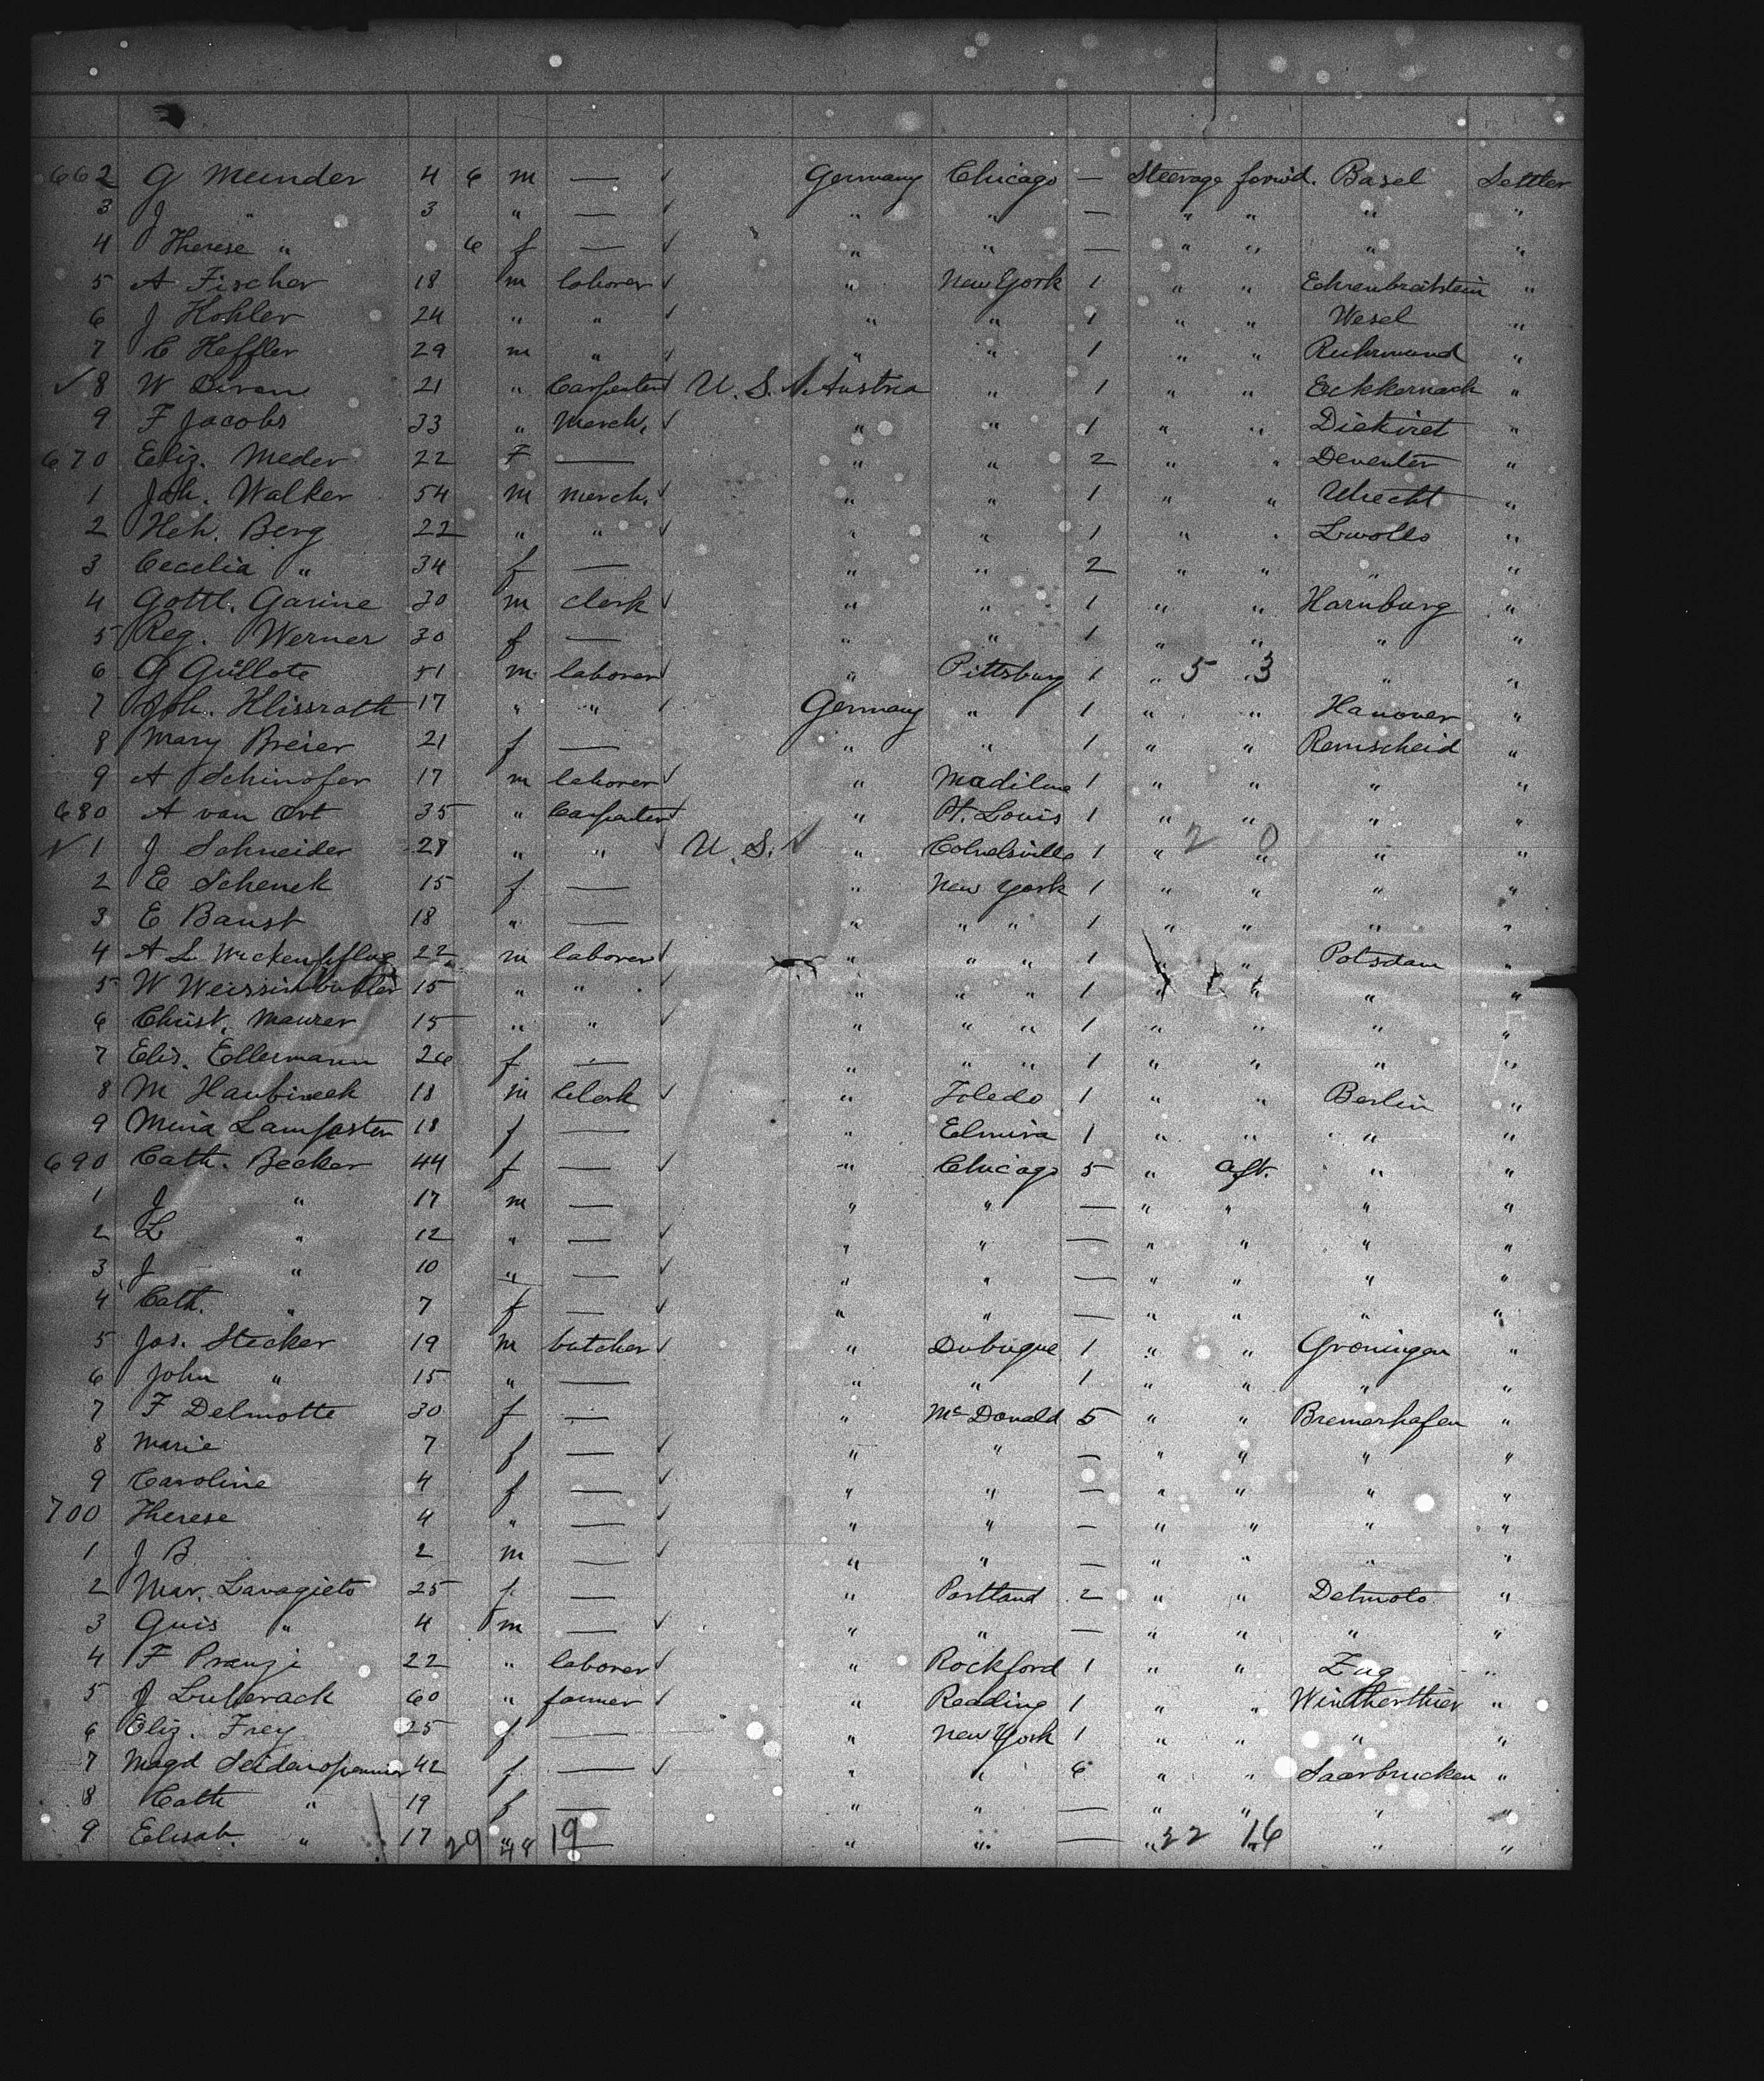 662 G Meinder 4 6 m — ✓ Germany Chicago — Steerage forw'd. Basel Settler
3 J " 3 " — ✓ " " — " " " "
4 Therese " 6 f — ✓ " " — " " " "
5 A Fischer 18 m laborer ✓ " New York 1 " " Echrenbreitstein "
6 J Kohler 24 " " ✓ " " 1 " " Wesel "
7 C Heffler 29 m " ✓ " " 1 " " Ruhrmund "
✓ 8 W 21 " Carpenter ✓ U. S. ✓ Austria " 1 " " Eckkernach "
9 F Jacobs 33 " Merch. ✓ " " 1 " " Diekiret "
670 Eliz. Meder 22 F — " " 2 " " Deventer "
1 Joh. Walker 54 m merch. ✓ " " 1 " " Utrecht "
2 Hch. Berg 22 " " ✓ " " 1 " " Zwolle "
3 Cecelia " 34 f — " " 2 " " " "
4 Gottl. Garine 30 m clerk ✓ " " 1 " " Harnburg "
5 Reg. Werner 30 f — " " 1 " " " "
6 G Gullote 51 m laborer ✓ " Pittsburg 1 " 5 " 3 " "
7 Joh. Klissrath 17 " " ✓ Germany " 1 " " Hanover "
8 Mary Breier 21 f — " " 1 " " Remscheid "
9 A Schinofer 17 m laborer ✓ " Madiline 1 " " " "
680 A van Ort 35 " Carpenter ✓ " St. Louis 1 " " " "
✓ 1 J Schneider 28 " " ✓ U. S. ✓ " 1 " 2 " 0 " "
2 E Schenck 15 f — " New York 1 " " " "
3 E Baust 18 " — " " " 1 " " " "
4 A L Wickenpflug 22 m laborer ✓ " " " 1 " " Potsdam "
5 W 15 " " ✓ " " " 1 " " " "
6 Christ. Maurer 15 " " ✓ " " " 1 " " " "
7 Elis. Ellermann 26 f — " " " 1 " " " "
8 M 18 m Clerk ✓ " Toledo 1 " " Berlin "
9 Mina 18 f — " Elmira 1 " " " "
690 Cath. Becker 44 f — ✓ " Chicago 5 " aft. " "
1 J " 17 m — " " — " " " "
2 L " 12 " — ✓ " " — " " " "
3 J " 10 " — ✓ " " — " " " "
4 Cath. " 7 f — ✓ " " — " " " "
5 Jos. Stecker 19 m butcher ✓ " Dubuque 1 " " Groningen "
6 John " 15 " — " " 1 " " " "
7 F Delmotte 30 f — " McDonald 5 " " Bremerhafen "
8 Marie 7 f — ✓ " " — " " " "
9 Caroline 4 f — ✓ " " — " " " "
700 Therese 4 " — ✓ " " — " " " "
1 J B 2 m — ✓ " " — " " " "
2 Mar. Lavagieto 25 f — " Portland 2 " " Delmolo "
3 Guis " 4 m — ✓ " " — " " " "
4 F Prangi 22 " laborer ✓ " Rockford 1 " " Zug "
5 J Luberack 60 " farmer ✓ " Reading 1 " " Wintherthier "
6 Eliz. Frey 25 f — " New York 1 " " " "
7 Magd 42 f — ✓ " " 6 " " Saarbrucken "
8 Cath " 19 f — " " — " " " "
9 Elisab. " 17 29 " 48 19 — " " — " 22 " 16 " "